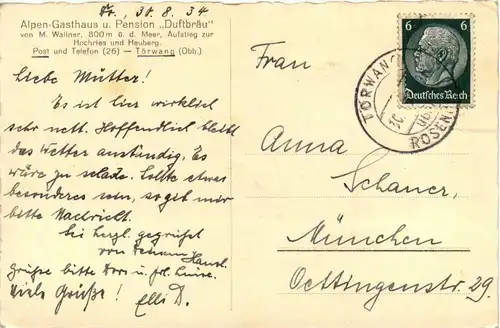 30.8.34
Alpen-Gasthaus u. Pension „Duftbräu"
von M. Wallner, 800 m ü. d. Meer, Aufstieg zur
Hochries und Heuberg.
Post und Telefon (26) — Törwang (Obb.)
Liebe Mutter!
Es ist hier wirklich
sehr nett. Hoffentlich bleibt
das Wetter anständig. Es
wäre zu schade. Sollte etwas
besonderes sein, so gib mir
bitte Nachricht.
Sei herzl. gegrüßt
von Hansl.
Grüße bitte u. Frl. Luise.
Viele Grüße! Elli D.
6 6
Deutsches Reich
TÖRWANG
ROSEN
Frau
Anna
Schauer,
München
Oettingenstr. 29.